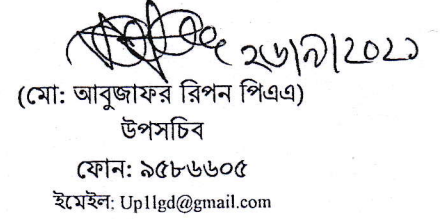 ২৬|৯|২০২১
(মো: আবুজাফর রিপন পিএএ)
উপসচিব
ফোন: ৯৫৮৬৬০৫
ইমেইল: Up1lgd@gmail.com